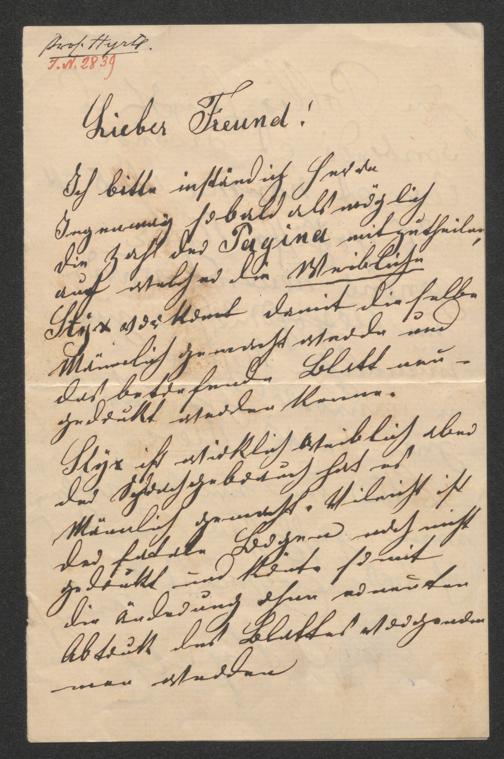 Prof. Hyrtl.
I.N. 2839
Lieber Freund!
Ich bitte inständig Herrn
sobald als möglich
die Zahl der Pagina mitzutheilen,
auf welcher die Weibliche
Styx vorkomt damit dieselbe
Männlich gemacht werde und
das betrefende Blatt neu-
gedrukt werden könne.
Styx ist wirklich weiblich aber
der Sprachgebrauch hat es
Männlich gemacht. Vileicht ist
der fatale Bogen noch nicht
gedrukt und könte somit
die Änderung ohne erneuten
Abdruk des Blattes vorgenom
men werden